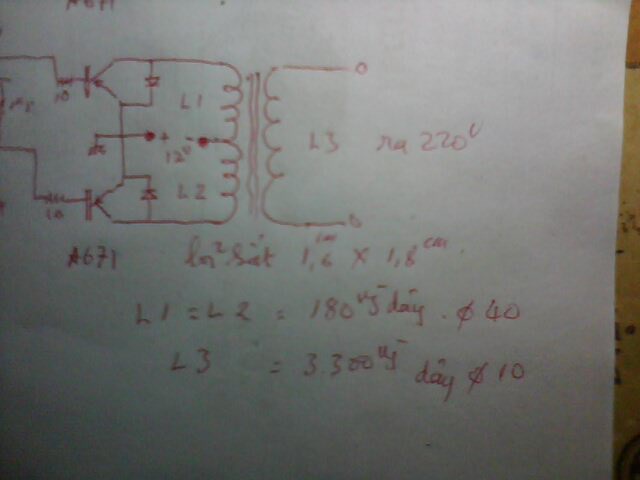 A671
10
L1
+ 12V -
L3 ra 220V
L2
10
A671 lõi sắt 1,6cm x 1,8cm.
L1 = L2 = 180vg dây . ϕ 40
L3 = 3.300vg dây ϕ 10